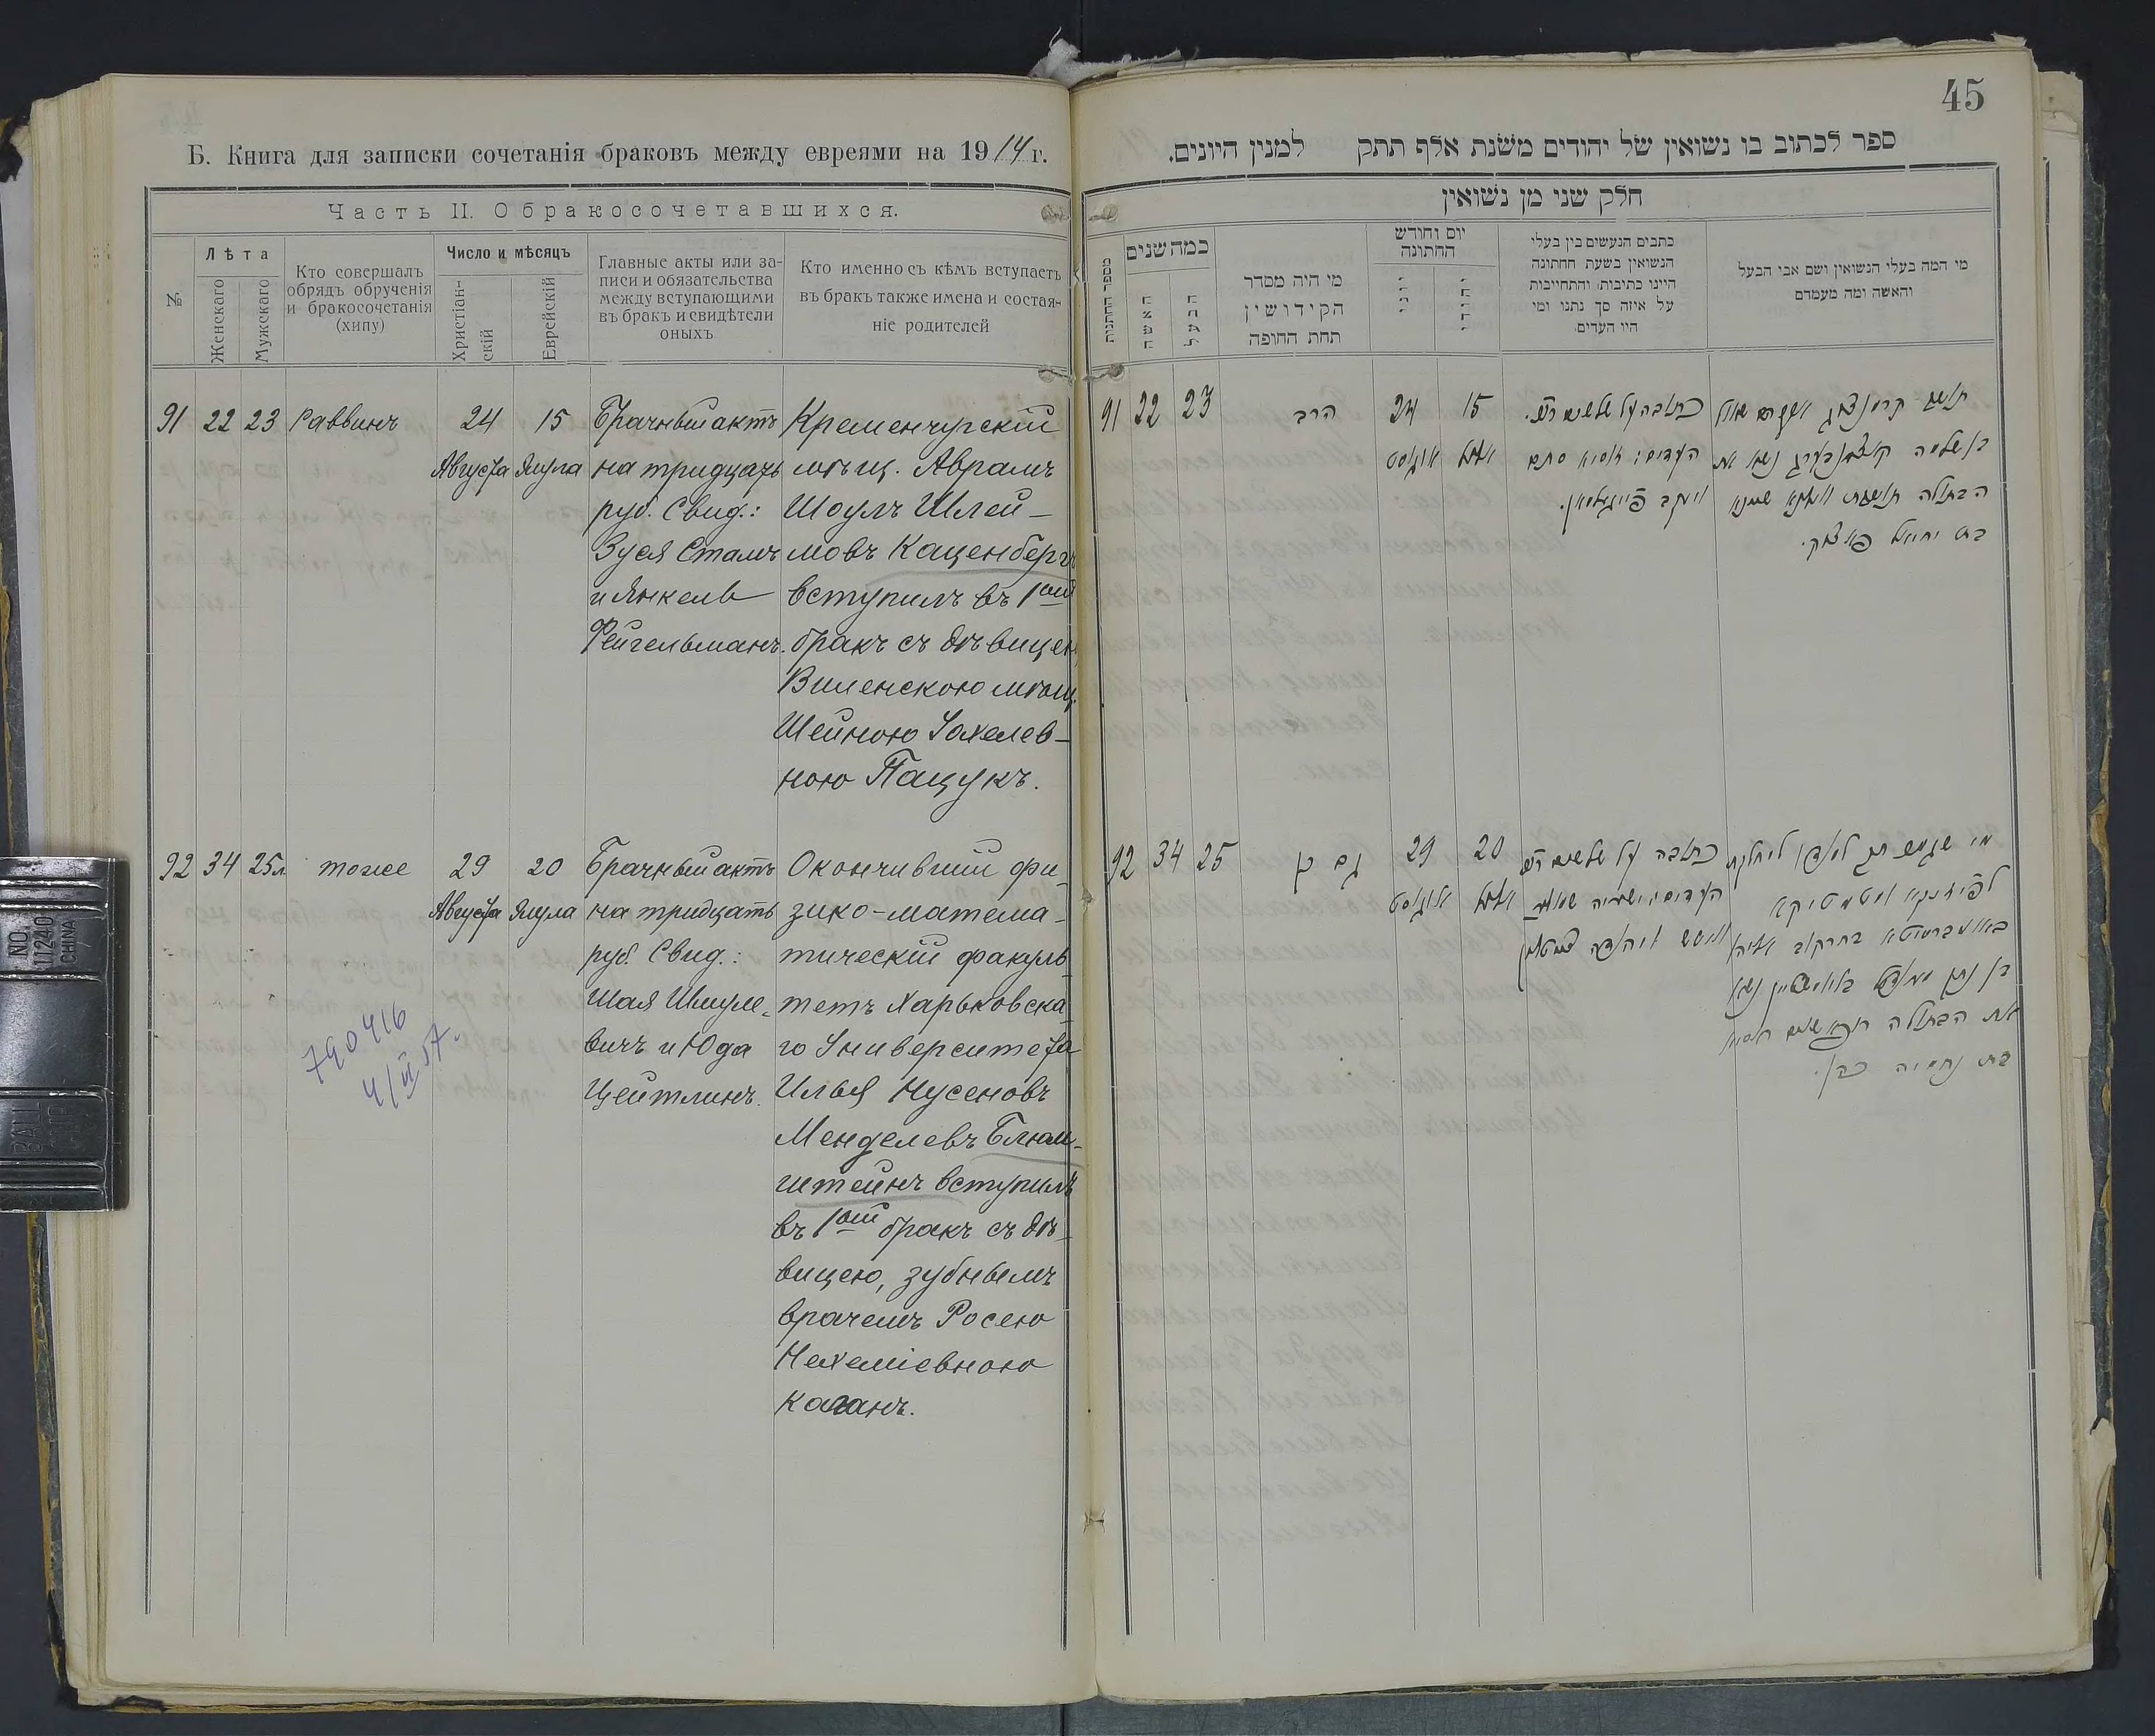 Б. Книга для записки сочетанія браковъ между евреями на 1914 г.
Часть II. О бракосочетавшихся.
№
Лѣта
Женскаго
Мужскаго
Кто совершалъ
обрядъ обрученія
и бракосочетанія
(хипу)
Число и мѣсяцъ
Христіан-
скій
Еврейскій
Главные акты или за-
писи и обязательства
между вступающими
въ бракъ и свидѣтели
оныхъ
Кто именно съ кѣмъ вступаетъ
въ бракъ также имена и состая-
ніе родителей
91
22
23
Раввинъ
24
Августа
15
Элула
Брачный актъ
на тридцать
руб. Свид.:
Зуся Стамъ
и Янкель
Фейгельманъ.
Кременчугскій
мѣщ. Аврамъ
Шоулъ Шлей-
мовъ Каценбергъ
вступилъ въ 1ый
бракъ съ дѣвицею
Виленскою мѣщ.
Шейною Iохелев-
ною Пацукъ.
92
34
25л
тоже
29
Августа
20
Элула
Брачный актъ
на тридцать
руб. Свид.:
Шая Шмуле-
вичъ и Юда
Цейтлинъ.
Окончившій фи-
зико-матема-
тическій факуль-
тетъ Харьковска-
го Университета
Илья Нусеновъ
Менделевъ Блюм-
штейнъ вступилъ
въ 1ый бракъ съ дѣ-
вицею, зубнымъ
врачемъ Росею
Нехеміевною
Каганъ.
790416
4/VI 57.
45
ספר לכתוב בו נשואין של יהודים משנת אלף תתק למנין היונים.
חלק שני מן נשואין
מספר החתונות
כמה שנים
האשה
הבעל
מי היה מסדר
הקידושין
תחת החופה
יום וחודש
החתונה
יוני
יהודי
כתבים הנעשים בין בעלי
הנשואין בשעת החתונה
היינו כתיבות והתחייבות
על איזה סך נתנו ומי
היו העדים
מי המה בעלי הנשואין ושם אבי הבעל
והאשה ומה מעמדם
91
22
23
הרב
24
אוגוסט
15
אלול
כתובה על שלשים רש.
העדים: זוסיא סתם
ויעקב פייגלמאן.
בן שלמה קאצענבערג נשא את
הבתולה
בת יחיאל פאצוק.
92
34
25
גם כן
29
אוגוסט
20
אלול
כתובה על שלשים רש
העדים: ישעיה
ויהודה צייטלין
באוניברסיטא בחרקוב אליהו
בן נתן מענדל בלומשטיין נשא
את הבתולה
בת נחמיה כהן.
NO.
K1/240
CHINA